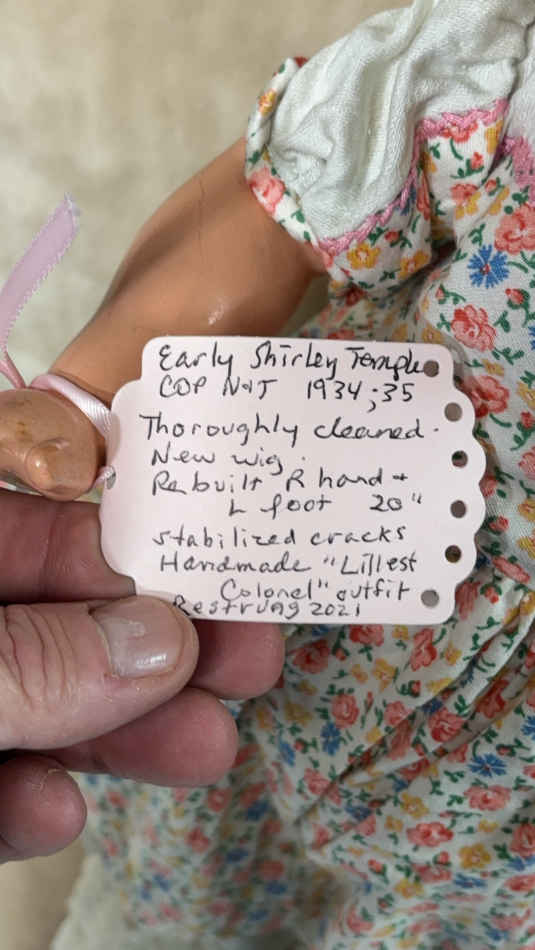 Early Shirley Temple
COP N&T 1934;35
Thoroughly cleaned.
New wig.
Rebuilt R hand +
L foot 20"
stabilized cracks
Handmade "Lillest
Colonel" outfit
Restrung 2021